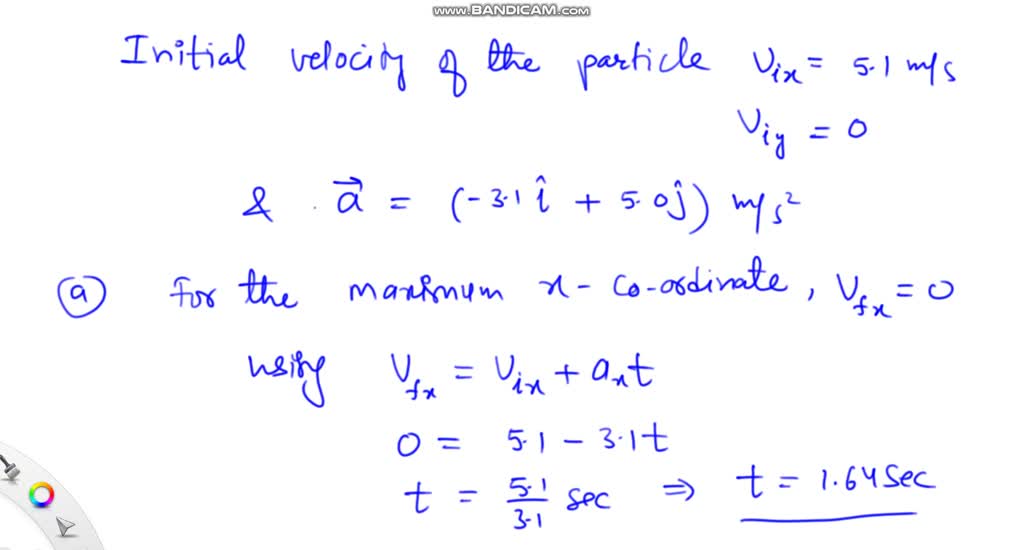 www.BANDICAM.com
Initial velocity of the particle Vix = 5.1 m/s
Viy = 0
& a⃗ = (-3.1 î + 5.0ĵ) m/s²
(a) For the maximum x-co-ordinate, Vfx = 0
using Vfx = Vix + axt
0 = 5.1 - 3.1t
t = 5.1/3.1 sec ⇒ t = 1.64 sec